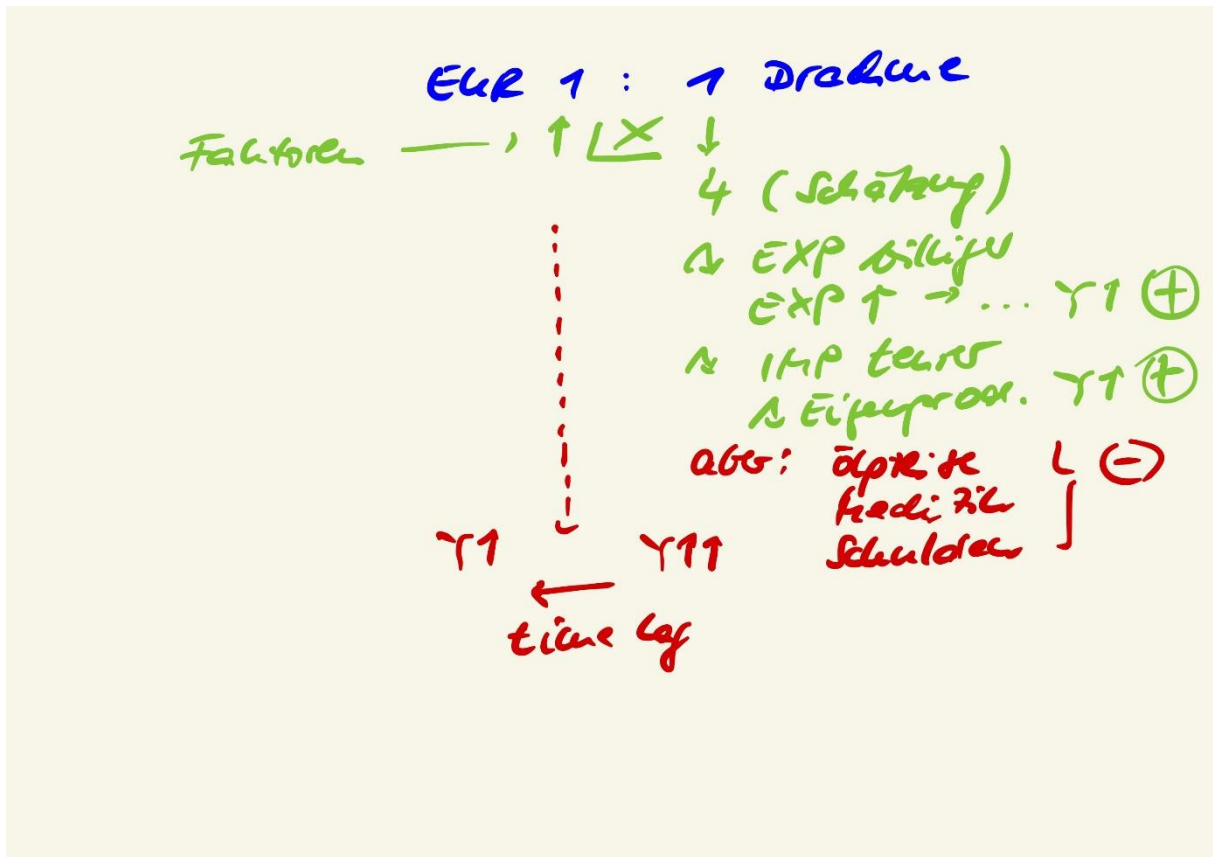 EUR 1 : 1 Drachme
Faktoren → ↑ ↓
4 (Schätzung)
EXP billiger
EXP ↑ → ... Y↑ ⊕
IMP teurer
Eigenprod. Y↑ ⊕
aber: Ölpreise ⊖
Medizin
Schulden
Y↑ Y↑↑
←
time lag